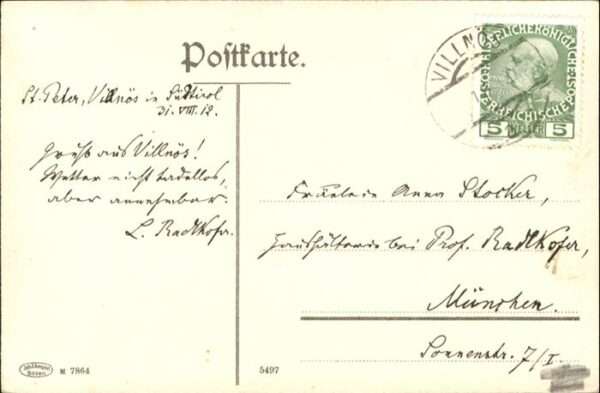 Postkarte.
VILLNÖ
KAISERLICHE KÖNIGLICHE
ÖSTERREICHISCHE POST
5 HELLER 5
St. Peter, Villnös in Südtirol
31. VIII. 12.
Gruß aus Villnös!
Wetter nicht tadellos,
aber annehmbar.
L. Radlkofer.
Fräulein Anna Stocker,
Haushälterin bei Prof. Radlkofer,
München.
Sonnenstr. 7/I.
M 7864
5497